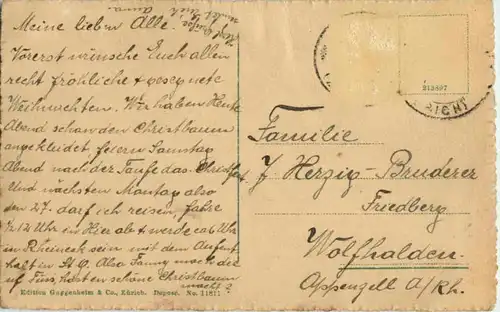 Meine lieben Alle.
Vorerst wünsche Euch allen
recht fröhliche & gesegnete
Weihnachten. Wir haben Heute
Abend schon den Christbaum
angekleidet feiern Samstag
Abend nach der Taufe das Christfest
Und nächsten Montag also
den 27. darf ich reisen, fahre
12 Uhr in Hier ab & werde ca Uhr
in Rheineck sein mit dem Aufent-
halt in St. G. Also Fanny mach der
uf Füss, hast en schöne Christbaum
macht?
Herzl. Grüsse,
sendet Euch
Anna.
Edition Guggenheim & Co., Zürich. Dépose. No. 11811
213497
RICHT
Familie
J. Herzig-Bruderer
Friedberg
Wolfhalden.
Appenzell A/Rh.